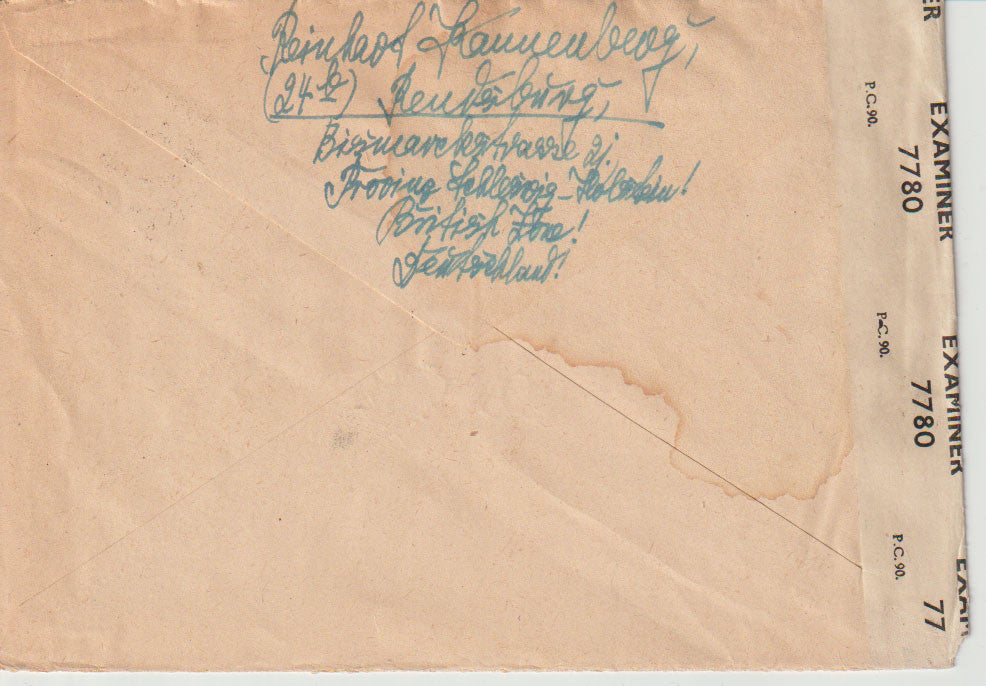 Reinhard Kannenberg,
(24b) Rendsburg,
Bismarckstrasse
Provinz Schleswig-Holstein!
British Zone!
Deutschland!
ER
P.C. 90.
EXAMINER
7780
P.C. 90.
EXAMINER
7780
P.C. 90.
EXAM
77